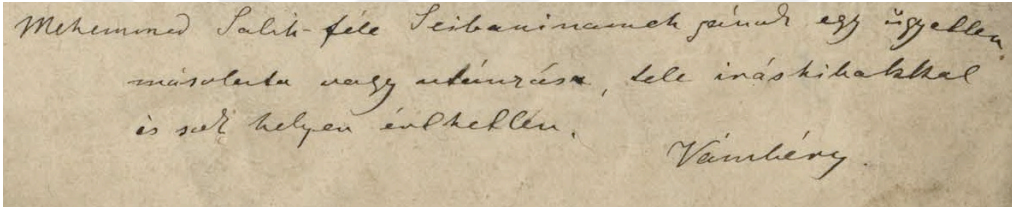 Mehemmed Salih-féle Seibaninameh jának egy ügyetlen
másolata vagy utánzása, tele iráshibákkal
és sok helyen érthetlen.
Vámbéry.